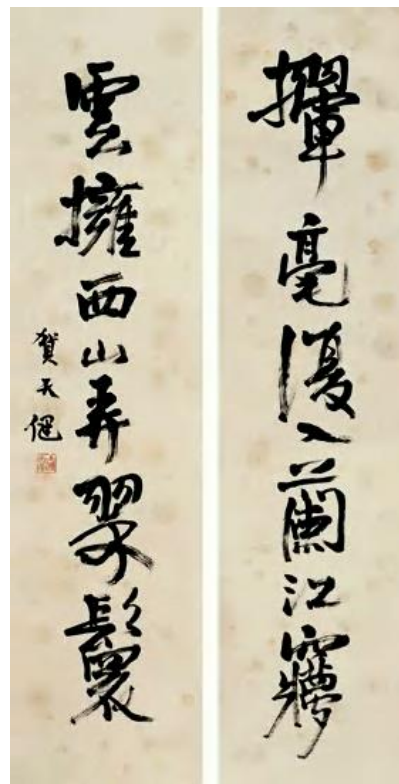 毫入蘭江
雲擁西山弄翠鬟
賀天健